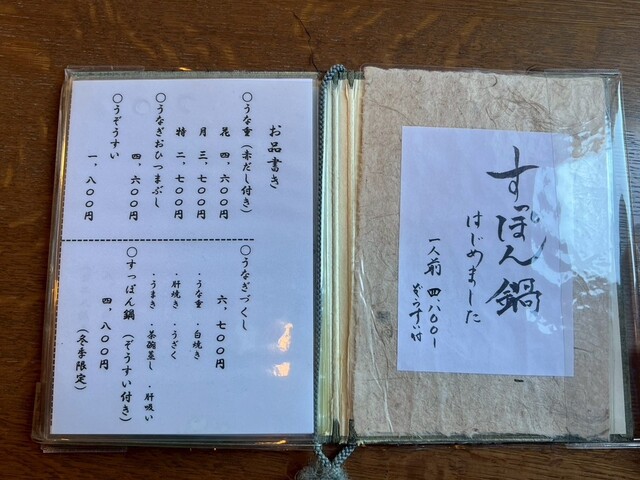 すっぽん鍋
はじめました
一人前 四、八〇〇ー
ぞうすい付
お品書き
〇うな重（赤だし付き）
昆 四、六〇〇円
月 三、七〇〇円
特 二、七〇〇円
〇うなぎおひつまぶし
四、六〇〇円
〇うぞうすい
一、八〇〇円
〇うなぎづくし
六、七〇〇円
・うな重 ・白焼き
・肝焼き ・うざく
・うまき ・茶碗蒸し ・肝吸い
〇すっぽん鍋（ぞうすい付き）
四、八〇〇円
（冬季限定）